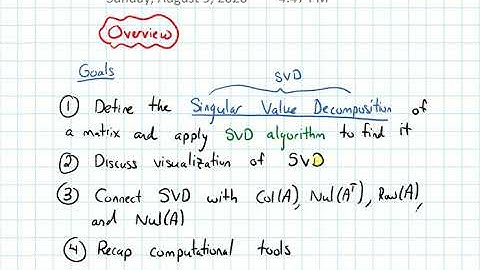 Sunday, August 9, 2020 4:47 PM
Overview
Goals
SVD
① Define the Singular Value Decomposition of
a matrix and apply SVD algorithm to find it
② Discuss visualization of SVD
③ Connect SVD with Col(A), Nul(Aᵀ), Row(A),
and Nul(A)
④ Recap computational tools